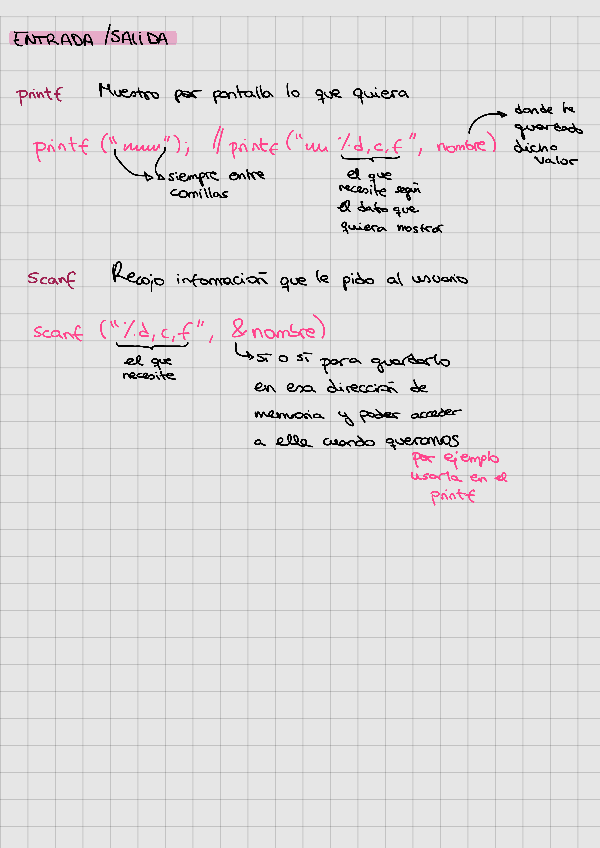 ENTRADA / SALIDA
printf Muestro por pantalla lo que quiera
printf ("
"); // printf ("
%d,c,f", nombre)
donde he
guardado
dicho
valor
siempre entre
comillas
el que
necesite según
el dato que
quiera mostrar
scanf Recojo información que le pido al usuario
scanf ("%d,c,f", &nombre)
el que
necesite
sí o sí para guardarlo
en esa dirección de
memoria y poder acceder
a ella cuando queramos
por ejemplo
usarla en el
printf